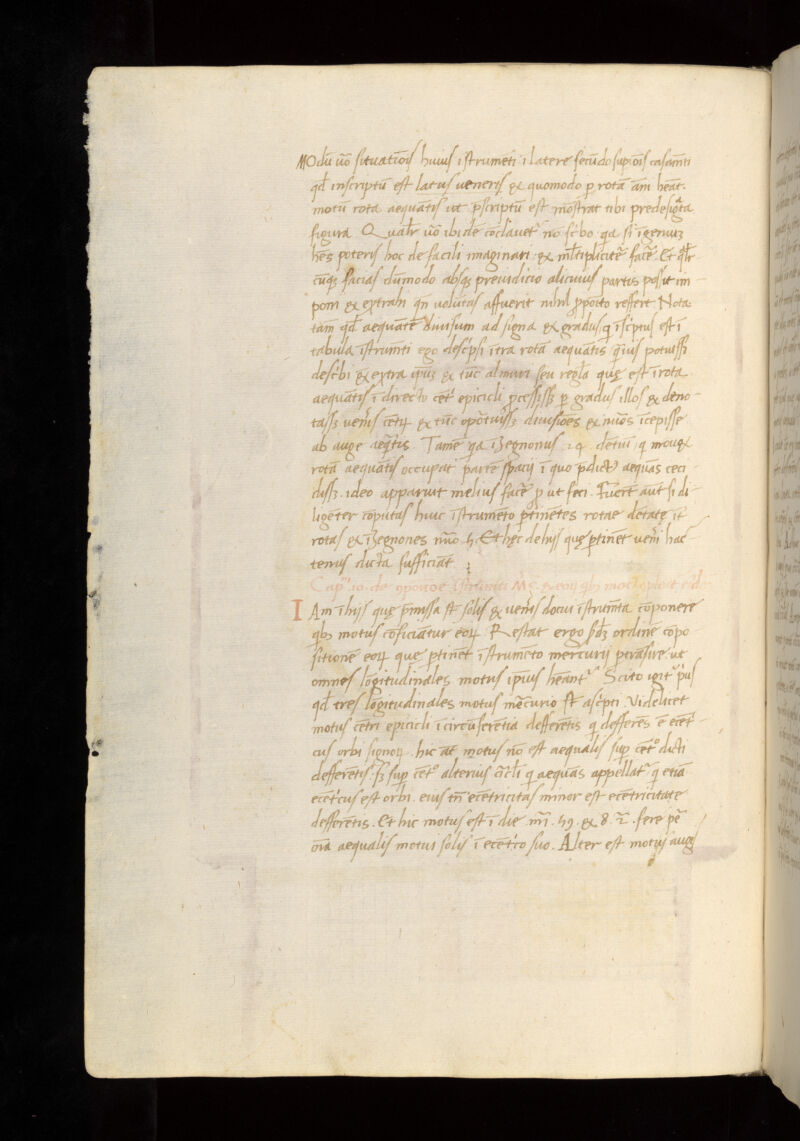 MOdū uo situatiōis huius ĩstrumēti ĩ latere secūdo sup oīs casamti
qd̄ inscriptū est latus ueneris & quomodo p rotā am̄ heāt.
motū rota aequātis ut pscriptū est mōstrat tibi predesigta
figura. Qualr̄ uo ibidē cōclauet̄ no scbo qa si ĩgeniuz
hēs poteris hoc de facili imaginari & mltiplicitē facē. Et qlr
cūqz facias dūmodo absqz preiudicio alicuius partis possit im
poni & extrahi qn̄ uelūtas affuerit nihil pposito reffert Nota
tam̄ qd̄ aequātē diuisum ad signa & gradus q ĩscptus est ĩ
tabula ĩstrumti ego descpsi ĩtra rotā aequātis qius potuissz
describi & extra ipūz & tūc almuri seu regla que est ĩ rota
aequātis ĩ directo cēt epicicli pcessissz p gradus illos & deno
tassz uenis cētꝝ & tūc oportuissz diuisiões & nuōs ĩcepisse
ab auge aeqtis. Tamē qa detui q mouēt
rotā aequātis occupat partē spacij ĩ quo pdictus aequās ceci
dissz. ideo apparuit melius facē p ut feci. Fuert aut si di
ligēter cōputas huic ĩstrumēto ptinētes rotae dētatę
rotas & nuo 5. Et hęc de hijs quę ptinēt uenī hac
tenus dicta sufficiāt
Cap. 10. de ĩstrumti
IAm ĩ hijs quę pmissa st solis & uenis docui ĩstrumta cōponere
qbz motus cōficiātur eoꝝ. Restat ergo scdz ordinē cōpo
sitione eoꝝ que ptinēt ĩstrumēto mercurij ptrāsire ut
omnes lōgitudinales motus ipius heant. Scito igit pus
qd̄ tres lōgitudinales motus mercurio st ascpti. Videlicet
motus cētri epicicli ĩ circūferētia defferētis q defferēs ē ecēt
cus orbi signoꝝ. hic at motus no est aequalis sup cēto dicti
defferētis. sz sup cēto alterius circli q aequās appellat q etiā
ecētcus est orbi. eius tn̄ ecētricitas minor est ecētricitate
defferētis. Et hic motus est ĩ die mi. 59. & 8. 2. fere pe
oīa aequalis motui solis ĩ ecētrco suo. Alter est motus aug